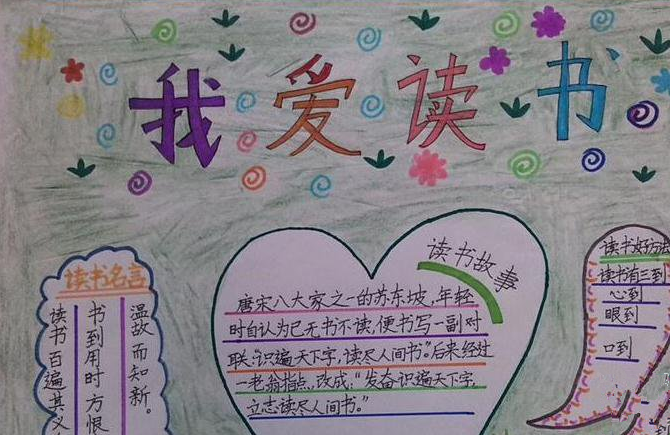 我爱读书
读书名言
温故而知新。
书到用时方恨
读书百遍其义
读书故事
唐宋八大家之一的苏东坡,年轻
时自认为已无书不读,便书写一副对
联:“识遍天下字,读尽人间书”。后来经过
一老翁指点,改成:“发奋识遍天下字,
立志读尽人间书。”
读书好方法
读书有三到
心到
眼到
口到